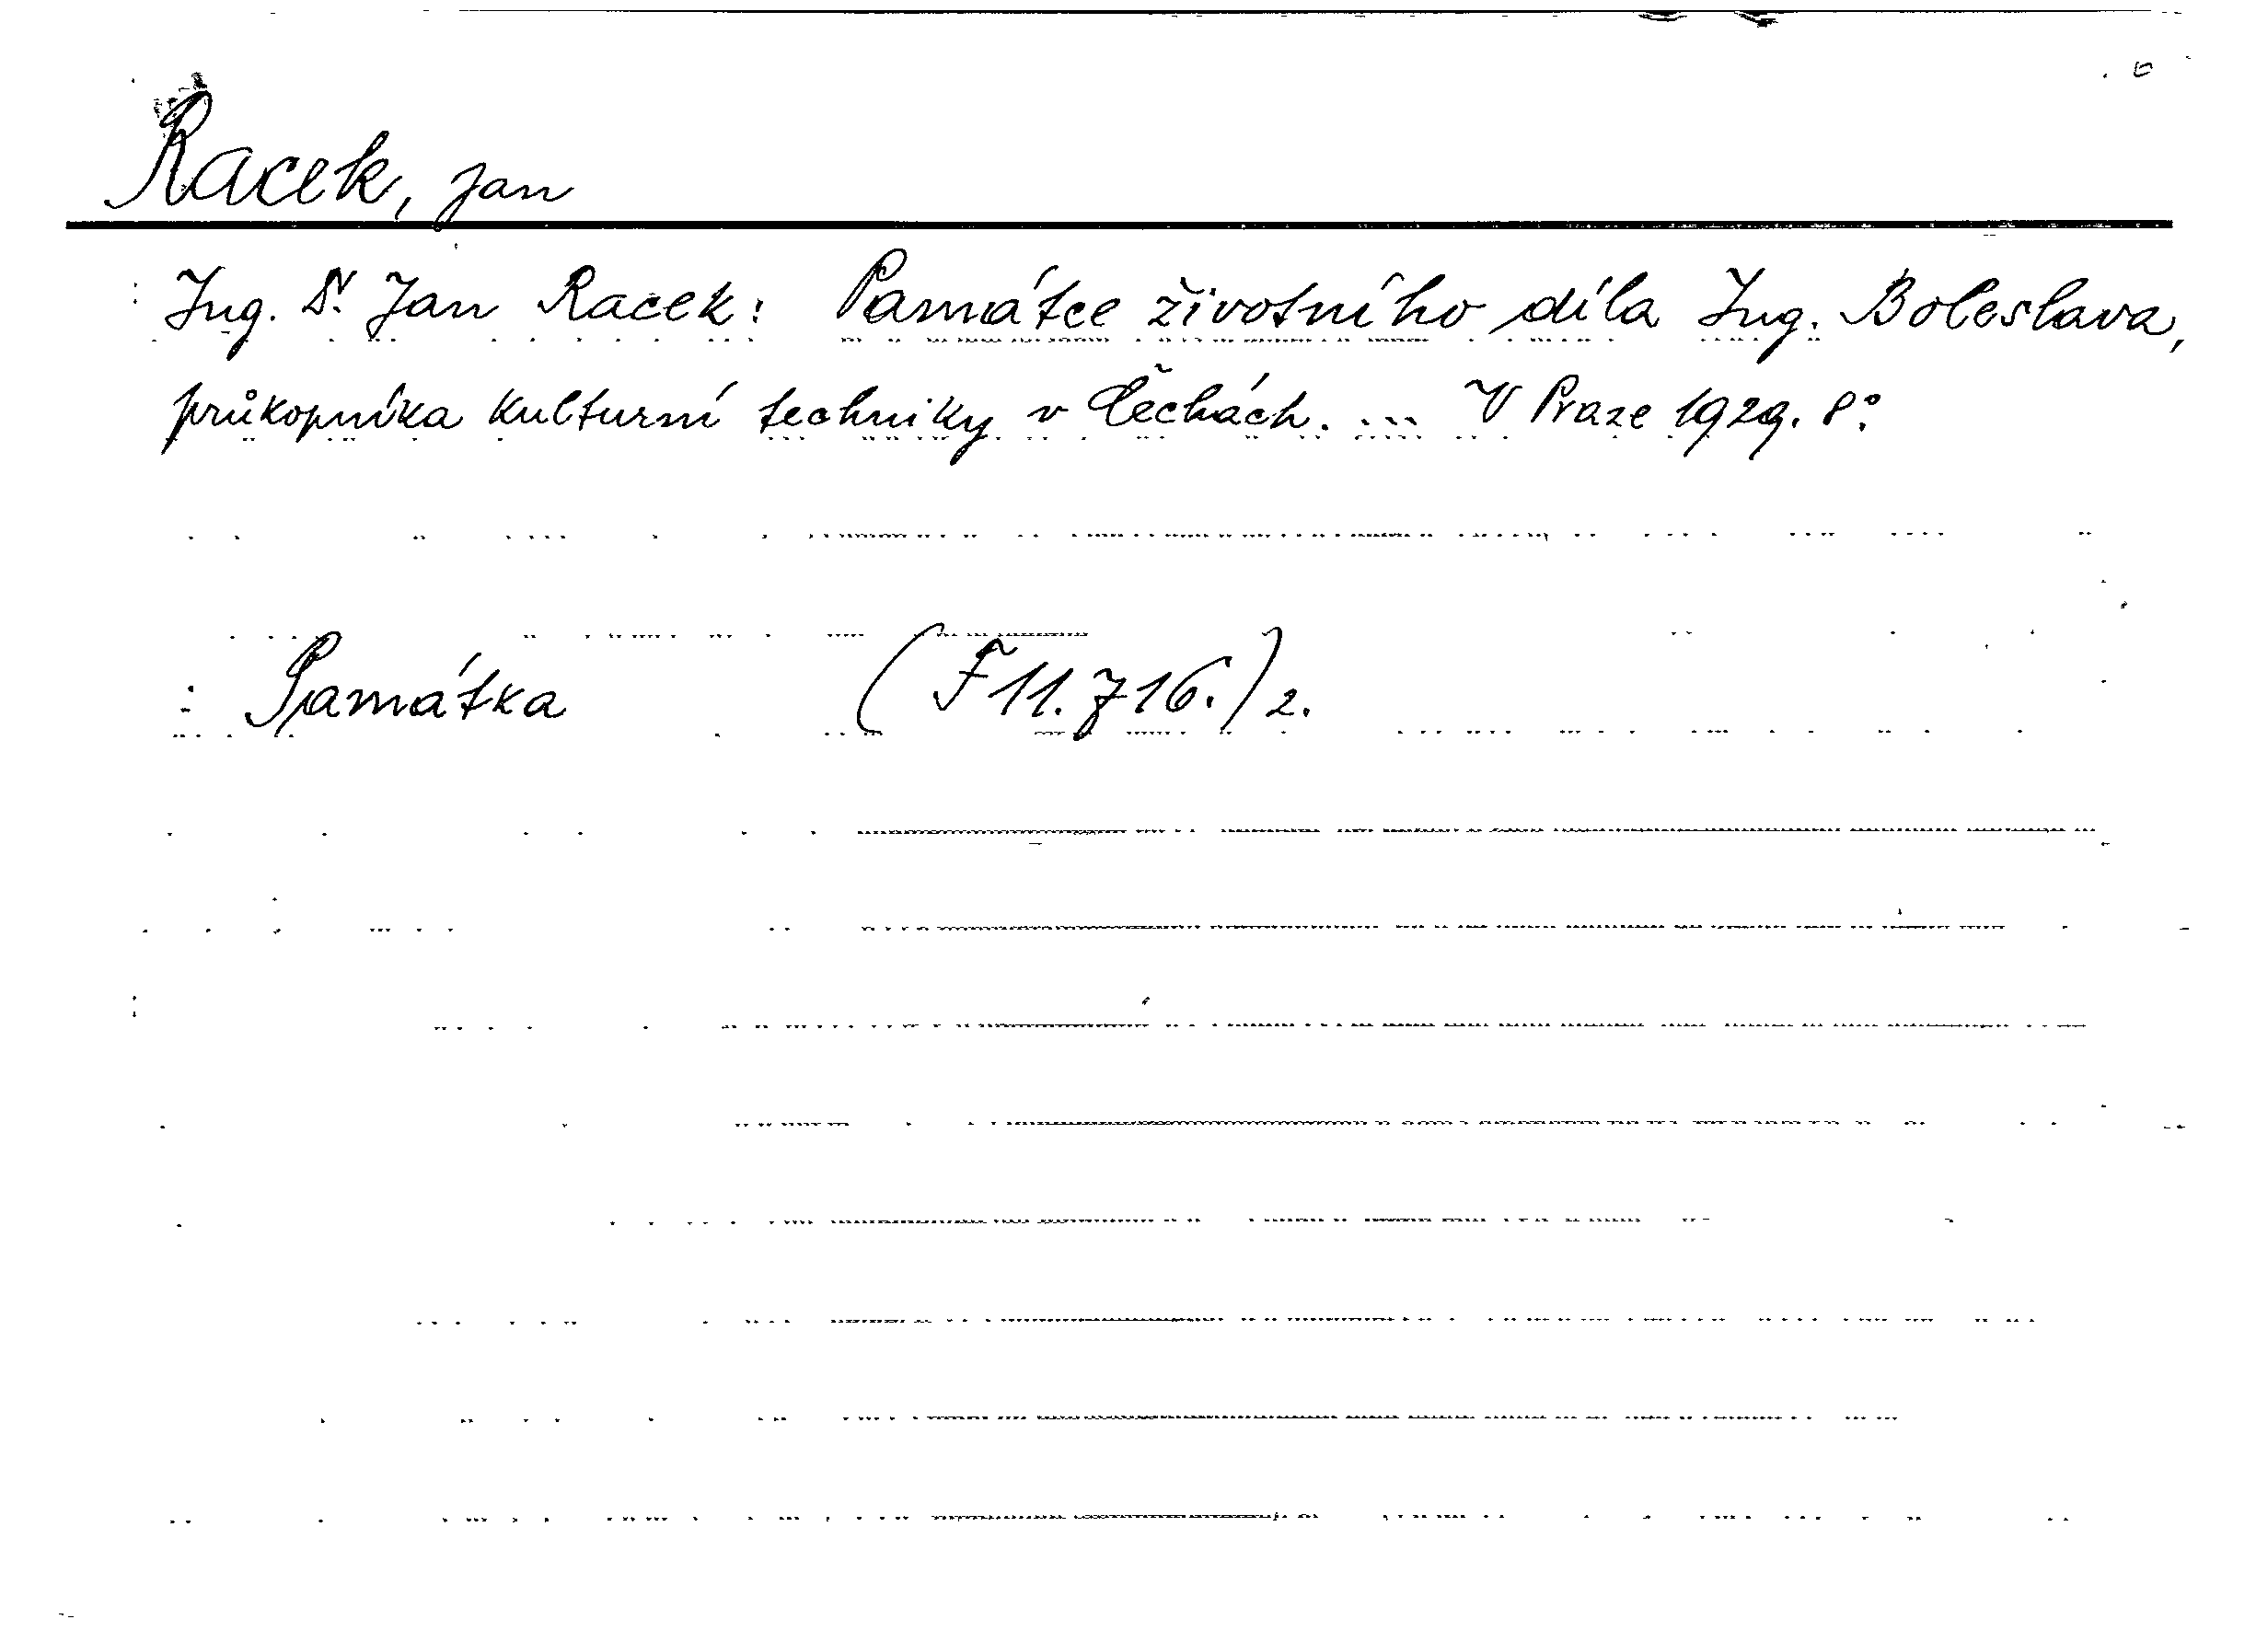 Racek, Jan
Ing. Dr. Jan Racek: Památce životního díla Ing. Boleslava,
průkopníka kulturní techniky v Čechách. ... V Praze 1929. 8°.
Památka (F 11.716.) 2.